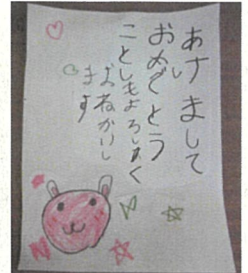 あけまして
おめでとう
ことしもよろしく
おねがいし
ます